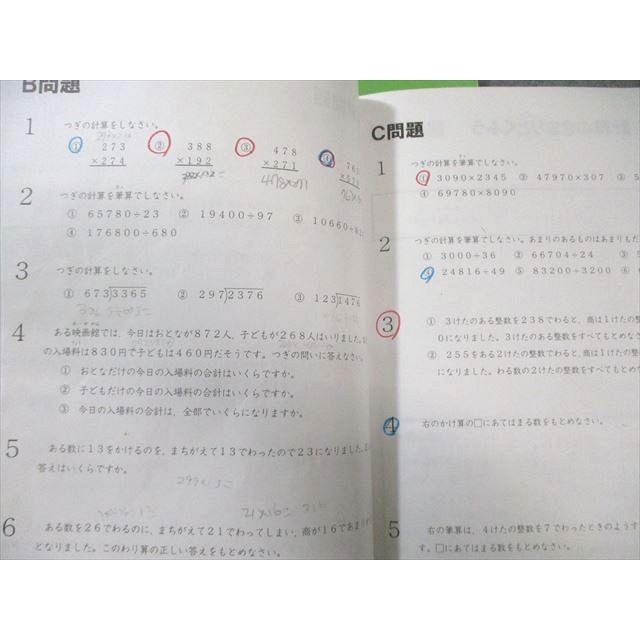 B問題
1
つぎの計算をしなさい。
① 273 ×274
② 388 ×192
③ 478 ×271
478×271
2
つぎの計算を筆算でしなさい。
① 65780÷23 ② 19400÷97 ③ 10660÷
④ 176800÷680
3
つぎの計算をしなさい。
① 673)3365 ② 297)2376 ③ 123)1476
4
ある映画館では、今日はおとなが872人、子どもが268人はいりました。
の入場料は830円で子どもは460円だそうです。つぎの問いに答えなさい。
① おとなだけの今日の入場料の合計はいくらですか。
② 子どもだけの今日の入場料の合計はいくらですか。
③ 今日の入場料の合計は、全部でいくらになりますか。
5
ある数に13をかけるのを、まちがえて13でわったので23になりました。
答えはいくらですか。
6
ある数を26でわるのに、まちがえて21でわってしまい、商が16であま
となりました。このわり算の正しい答えをもとめなさい。
C問題
1
つぎの計算を筆算でしなさい。
① 3090×2345 ② 47970×307 ③
④ 69780×8090
2
つぎの計算を筆算でしなさい。あまりのあるものはあまりもだ
① 3000÷36 ② 66704÷24 ③
④ 24816÷49 ⑤ 83200÷3200 ⑥
3
① 3けたのある整数を238でわると、商は1けたの
0になりました。3けたのある整数をすべてもとめな
② 255をある2けたの整数でわると、商は1けたの
になりました。わる数の2けたの整数をすべてもとめ
4
右のかけ算の□にあてはまる数をもとめなさい。
5
右の筆算は、4けたの整数を7でわったときのようす
す。□にあてはまる数をもとめなさい。